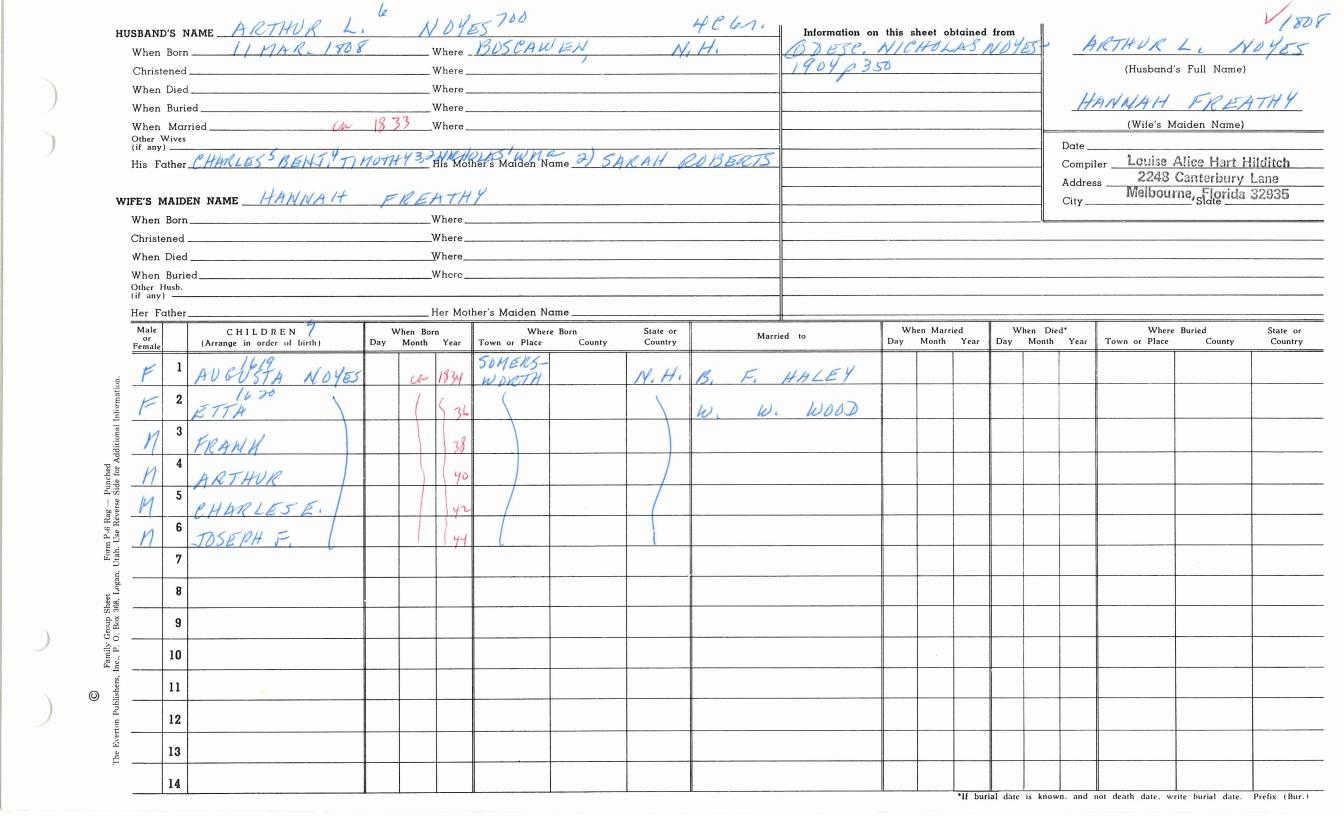 HUSBAND'S NAME ARTHUR L. 6 NOYES 700 4 Ch.
When Born 11 MAR. 1808 Where BOSCAWEN, N.H.
Christened Where
When Died Where
When Buried Where
When Married ca 1833 Where
Other Wives
(if any)
His Father CHARLES 5 BENJ. 4 TIMOTHY 3,2 NICHOLAS 1 Wm a His Mother's Maiden Name 2) SARAH ROBERTS
WIFE'S MAIDEN NAME HANNAH FREATHY
When Born Where
Christened Where
When Died Where
When Buried Where
Other Husb.
(if any)
Her Father Her Mother's Maiden Name
Information on this sheet obtained from
① DESC. NICHOLAS NOYES-
1904 p 350
✓1808
ARTHUR L. NOYES
(Husband's Full Name)
HANNAH FREATHY
(Wife's Maiden Name)
Date
Compiler Louise Alice Hart Hilditch
Address 2248 Canterbury Lane
City Melbourne, Florida 32935 State
Male or Female CHILDREN 7 (Arrange in order of birth) When Born Day Month Year Where Born Town or Place County State or Country Married to When Married Day Month Year When Died* Day Month Year Where Buried Town or Place County State or Country
F 1 1619 AUGUSTA NOYES ca 1834 SOMERS-WORTH N.H. B. F. HALEY
F 2 1620 ETTA 36 W. W. WOOD
M 3 FRANK 38
M 4 ARTHUR 40
M 5 CHARLES E. 42
M 6 JOSEPH F. 44
7
8
9
10
11
12
13
14
*If burial date is known, and not death date, write burial date. Prefix (Bur.)
Family Group Sheet Form P-6 Rag — Punched
© The Everton Publishers, Inc., P. O. Box 368, Logan, Utah. Use Reverse Side for Additional Information.